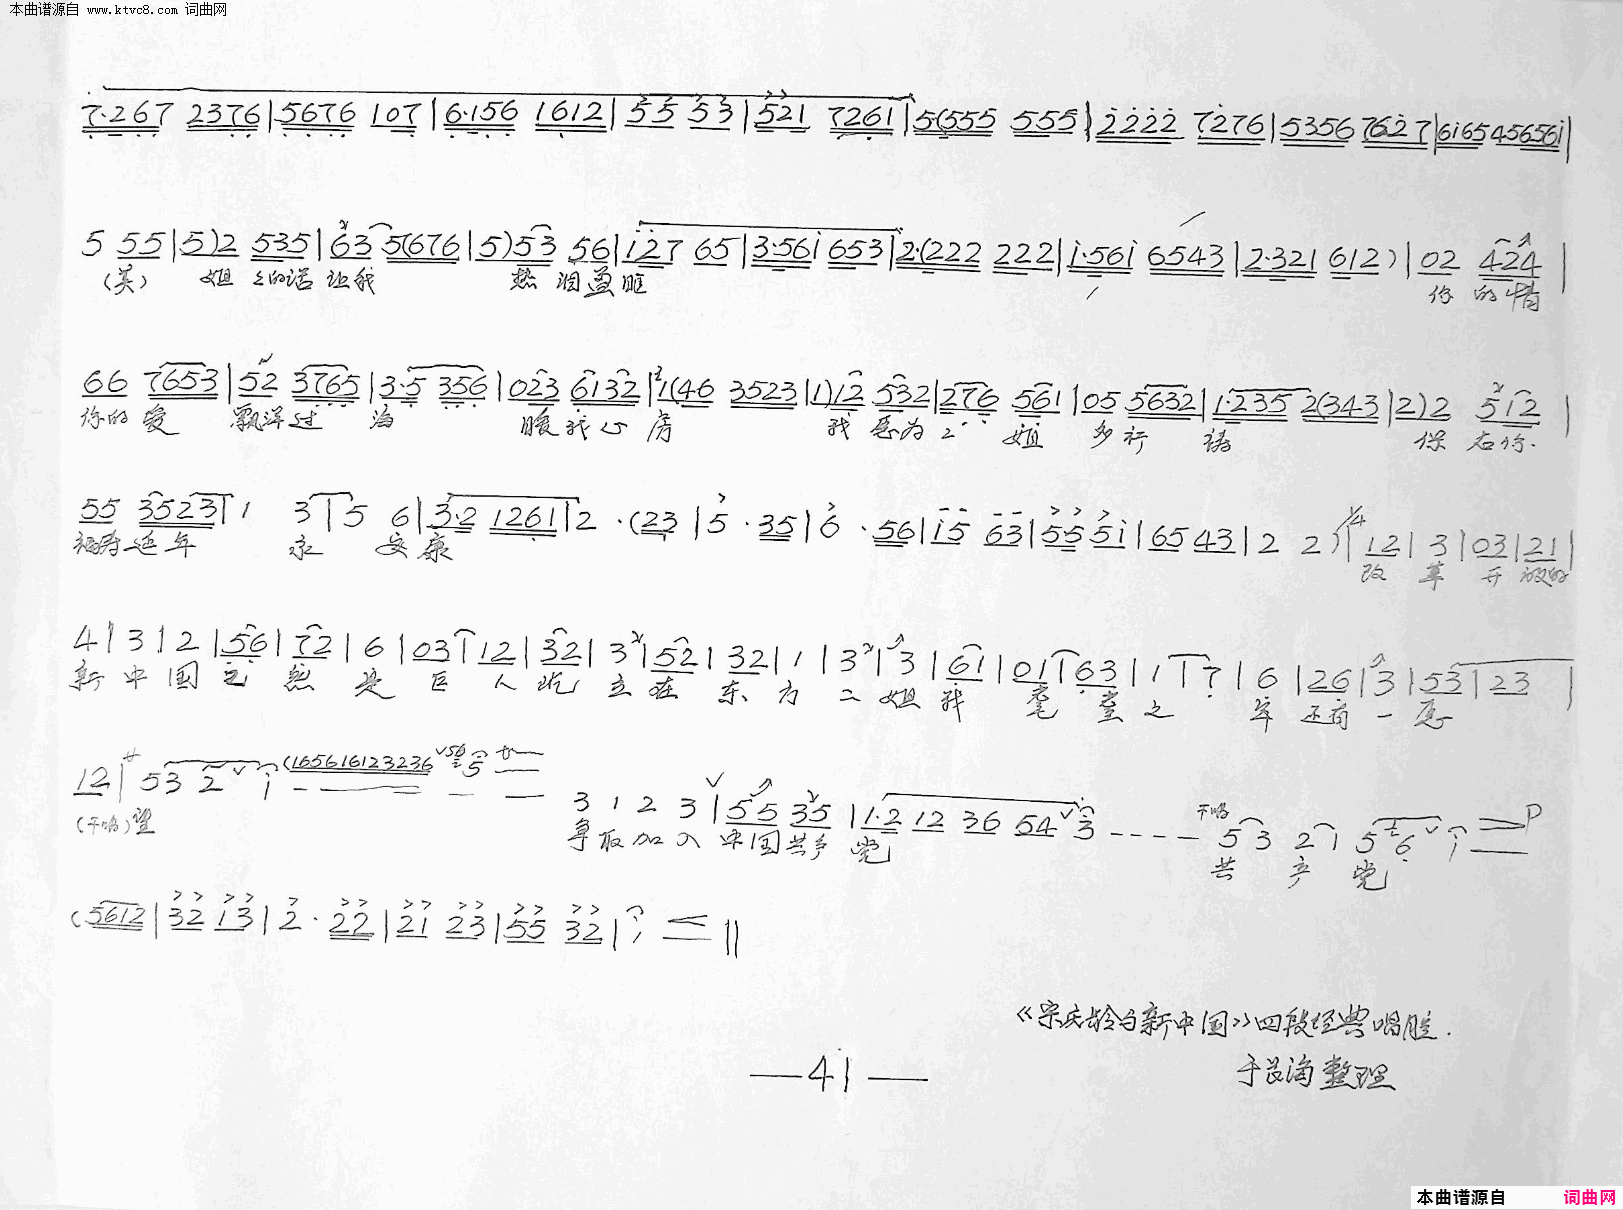 本曲谱源自 www.ktvc8.com 词曲网
7·267 2376|5676 107|6·156 1612|55 53|521 7261|5(555 555|2222 7276|5356 7627|6165 456561|
5 55|5)2 535|63 5(676|5)53 56|127 65|3·561 653|2·(222 222|1·561 6543|2·321 612)|02 424|
(美) 姐 之的话 让我 热 泪盈眶 你 的情
66 7653|52 3765|3·5 356|023 6132|1(46 3523|1)12 532|276 561|05 5632|1·235 2(343|2)2 512|
你的爱 飘洋过 海 暖我心房 我愿为二 姐 多祈祷 保右你.
55 3523|1 3|5 6|3·2 1261|2·(23|5·35|6·56|15 63|55 51|65 43|2 2)|1/4 12|3|03|21|
福寿延年 永 安康 改 革 开 放的
4|3|2|56|72|6|03|12|32|3|52|32|1|3|3|61|01|63|1|7|6|26|3|53|23|
新 中 国 已 然 是 巨 人 屹 立 在 东 方 二 姐 我 耄 耋 之 年 还有 一 愿
12|サ 53 2 1 (165616123236 56 5
(干唱) 望
3 1 2 3|55 35|1·2 12 36 54 3 - - - - 干唱 53 21 5 6 1 P
争取加入 中国共产党 共 产 党
(5612|32 13|2·22|21 23|55 32|1 ||
《宋庆龄与新中国》四段经典唱腔.
—41— 于长海整理
本曲谱源自 词曲网